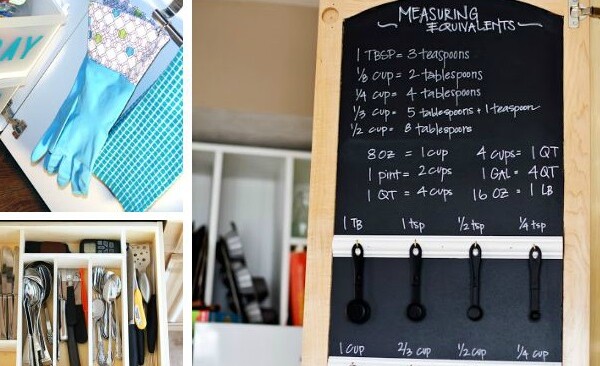 DAY
MEASURING
EQUIVALENTS
1 TBSP = 3 teaspoons
1/8 cup = 2 tablespoons
1/4 cup = 4 tablespoons
1/3 cup = 5 tablespoons + 1 teaspoon
1/2 cup = 8 tablespoons
8 oz = 1 cup 4 cups = 1 QT
1 pint = 2 cups 1 GAL = 4 QT
1 QT = 4 cups 16 oz = 1 LB
1 TB 1 tsp 1/2 tsp 1/4 tsp
1 cup 2/3 cup 1/2 cup 1/4 cup